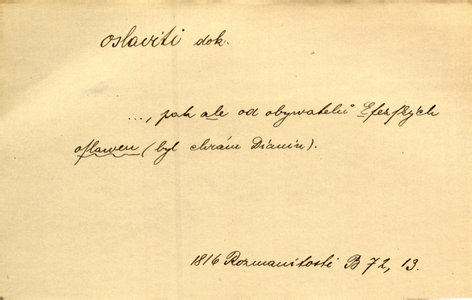 oslaviti dok.
..., pak ale od obywatelů Efezských
oslawen (byl chrám Dianin).
1816 Rozmanitosti B 72, 13.